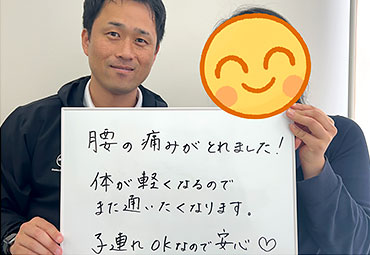 腰の痛みがとれました!
体が軽くなるので
また通いたくなります。
子連れOKなので安心♡